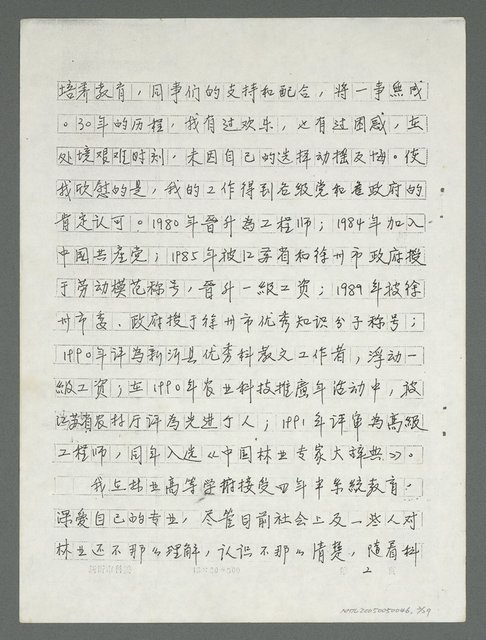 培养教育，同事们的支持和配合，将一事無成
。30年的历程，我有过欢乐，也有过困惑，在
处境艰难时刻，未因自己的选择动摇反悔。使
我欣慰的是，我的工作得到各级党和政府的
肯定认可。1980年晉升為工程师；1984年加入
中国共产党；1985年被江苏省和徐州市政府授
于劳动模范称号，晉升一級工资；1989年被徐
州市委、政府授于徐州市优秀知识分子称号；
1990年评為新沂县优秀科教文工作者，浮动一
級工资；在1990年农业科技推廣年活动中，被
江苏省农村厅评為先进个人；1991年评审為高級
工程师，同年入选《中国林业专家大辞典》。
我在林业高等学府接受四年半系統教育，
深愛自己的专业，尽管目前社会上及一些人对
林业还不那么理解，认识不那么清楚，随着科
2
NMTL20050050046